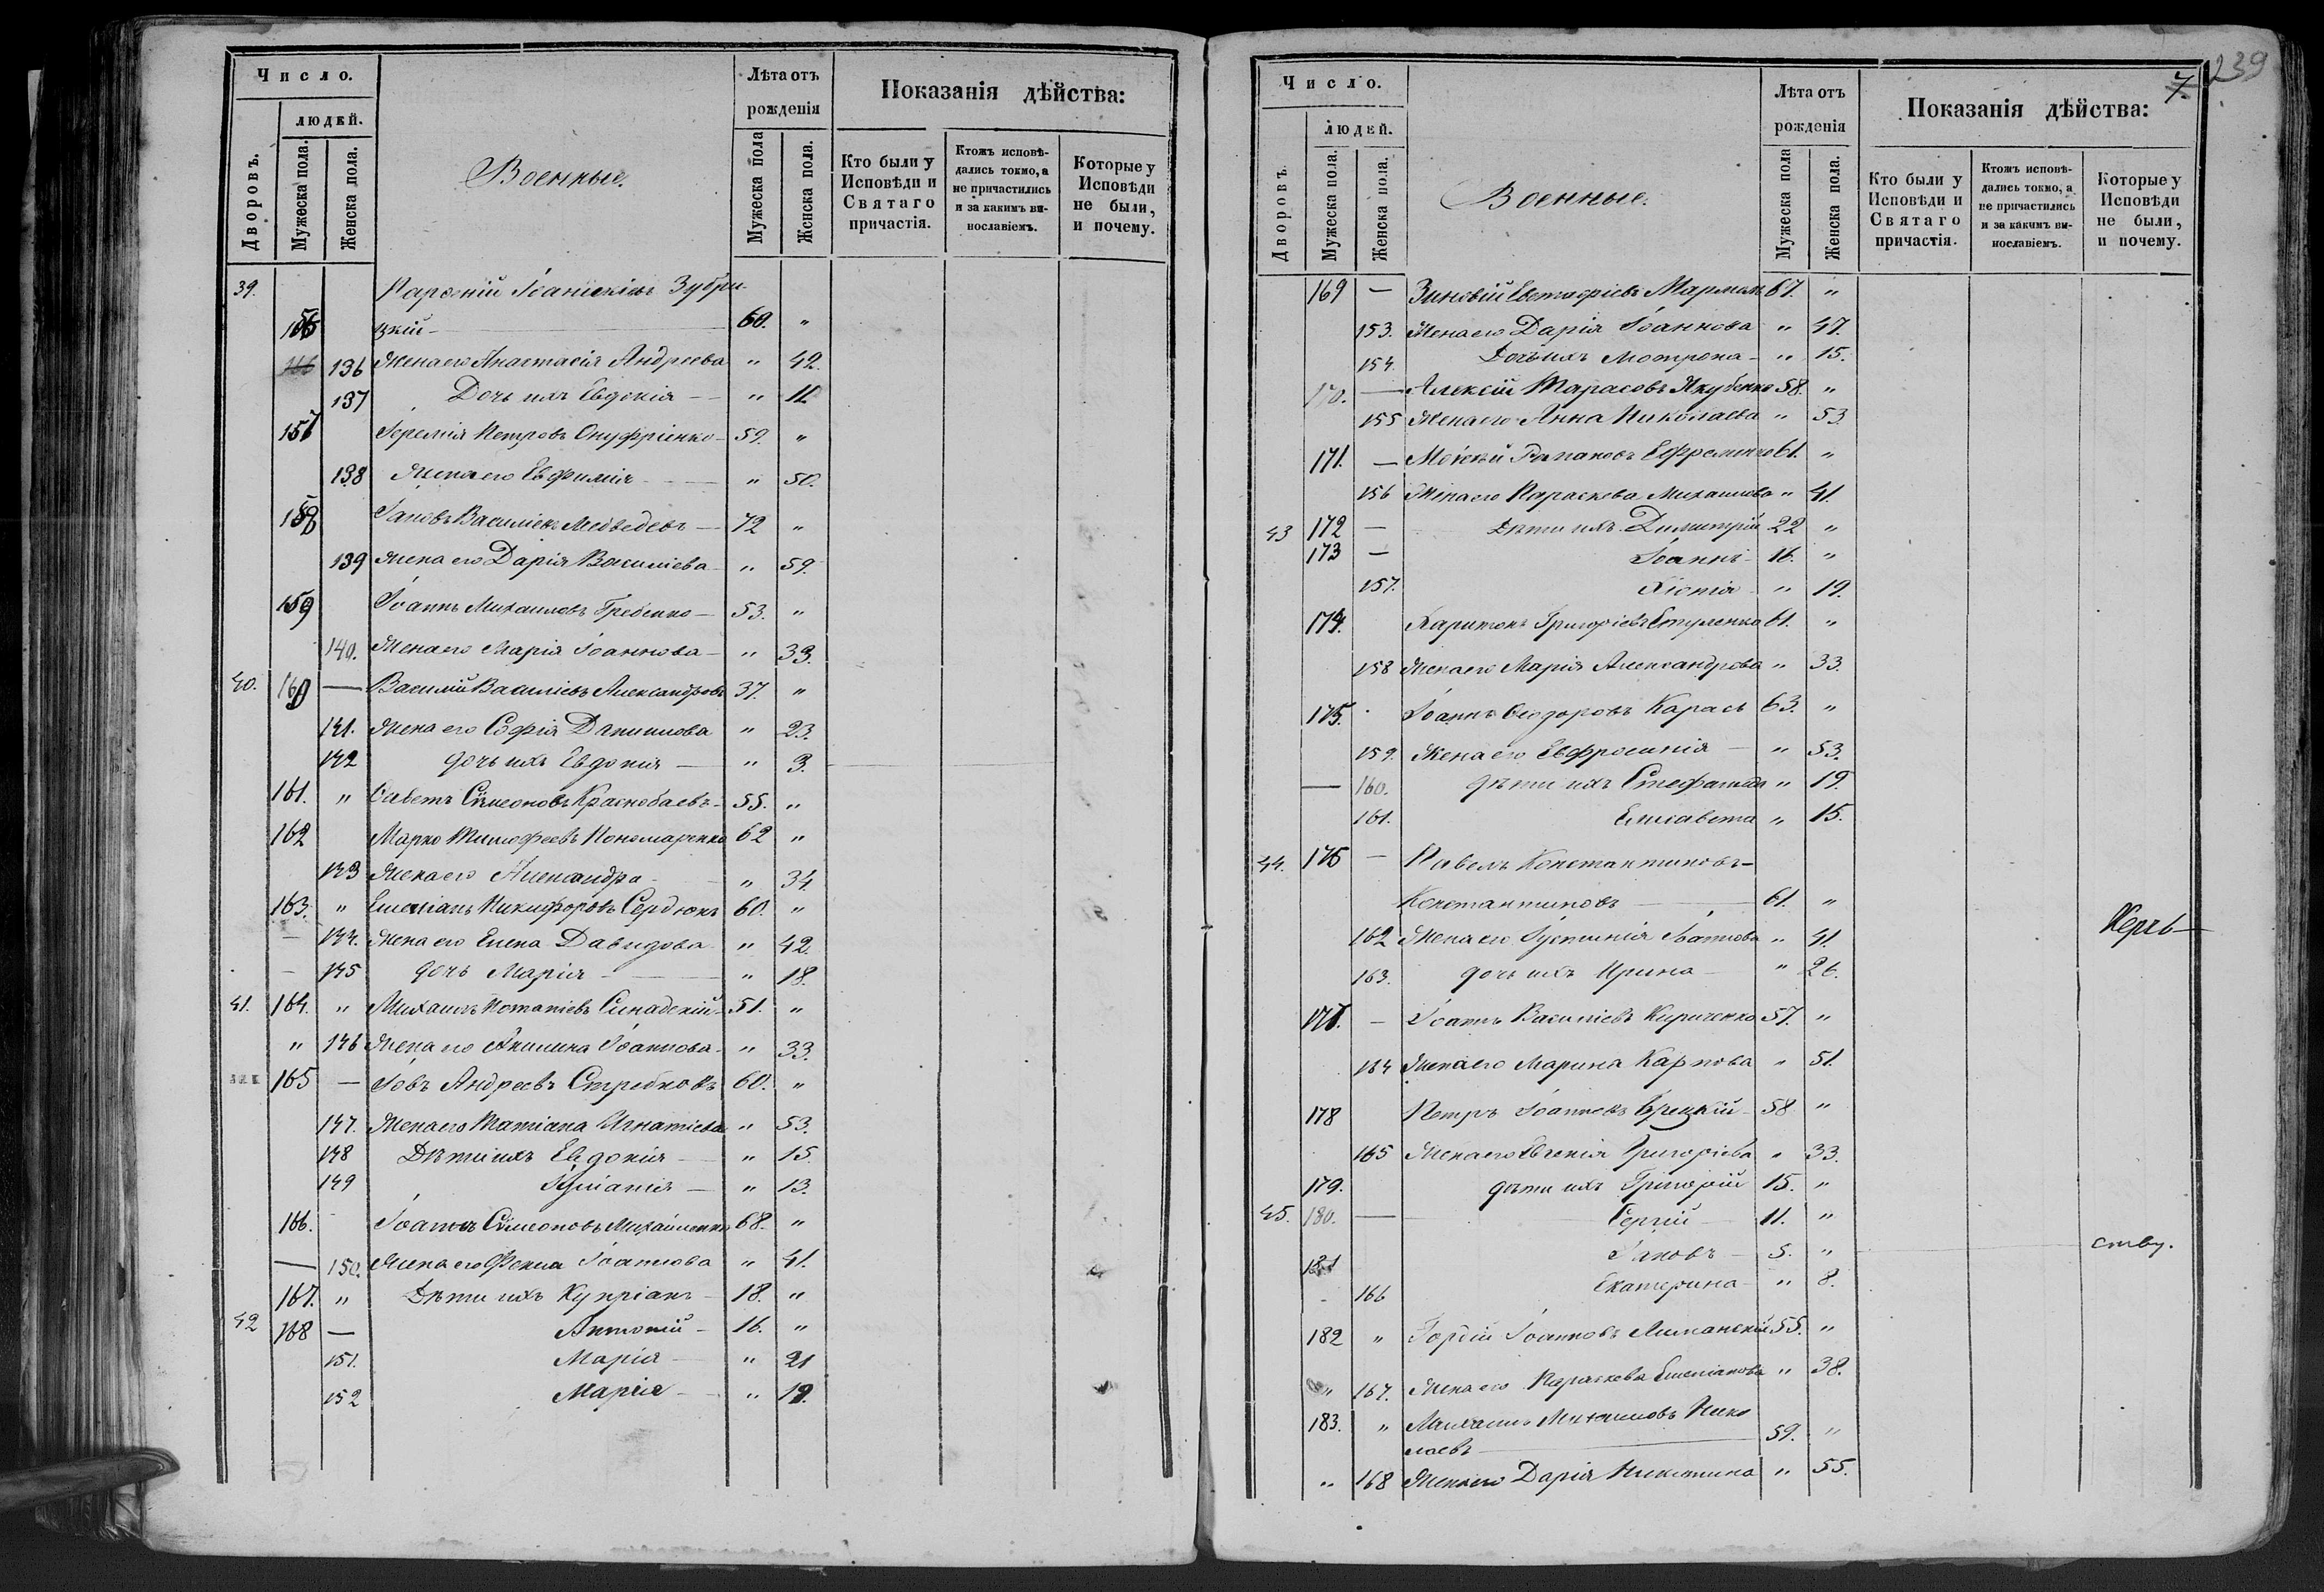 Число.
людей.
Дворовъ.
Мужеска пола.
Женска пола.
Военные.
Лѣта отъ
рожденія
Мужеска пола
Женска пола.
Показанія дѣйства:
Кто были у
Исповѣди и
Святаго
причастія.
Ктожъ исповѣ-
дались токмо, а
не причастились
и за какимъ ви-
нославіемъ.
Которые у
Исповѣди
не были,
и почему.
39. Парѳеній Іоаникіевъ Зубри-
156 цкій — 60. "
136 Жена его Анастасія Андреева " 42.
137 Дочь ихъ Евдокія — " 11.
157 Іеремія Петровъ Онуфріенко — 59. "
138 Жена его Евфимія — " 50.
158 Іаковъ Василіевъ Медведевъ — 72 "
139 Жена его Дарія Василіева — " 59.
159 Іоаннъ Михаиловъ Гребенко — 53. "
140. Жена его Марія Іоаннова — " 33.
40. 160 — Василій Василіевъ Александровъ 37. "
141. Жена его Софія Даниилова " 23.
142 дочь ихъ Евдокія — " 3.
161. " Савва Сѵмеоновъ Краснобаевъ — 55. "
162 Марко Тимофеевъ Пономаренко 62 "
143 Жена его Александра — " 34.
163. " Емеліанъ Никифоровъ Сердюкъ 60. "
— 144. Жена его Елена Давидова " 42.
— 145 дочь Марія — " 18.
41. 164. " Михаилъ Потапіевъ Синадскій — 51. "
" 146 Жена его Акилина Іоаннова — " 33.
165 — Іовъ Андреевъ Стребковъ 60. "
147. Жена его Татіана Игнатіева " 53.
148 Дѣти ихъ Евдокія — " 15.
149 Іуліанія — " 13.
166. Іоаннъ Сѵмеоновъ Михайленко 68. "
— 150. Жена его Фекла Іоаннова " 41.
167. " Дѣти ихъ Купріанъ — 18. "
42 168 — Антоній — 16. "
151. Марія — " 21
152 Марія — " 19.
7. 239
Число.
людей.
Дворовъ.
Мужеска пола.
Женска пола.
Военные.
Лѣта отъ
рожденія
Мужеска пола
Женска пола.
Показанія дѣйства:
Кто были у
Исповѣди и
Святаго
причастія.
Ктожъ исповѣ-
дались токмо, а
не причастились
и за какимъ ви-
нославіемъ.
Которые у
Исповѣди
не были,
и почему.
169 — Зиновій Евстафіевъ 67. "
153. Жена его Дарія Іоаннова " 47.
154. Дочь ихъ Мотрона — " 15.
170. — Алексій Тарасовъ Якубенко 58. "
155 Жена его Анна Николаева " 53.
171. — Моисей Романовъ Ефременко 61. "
156 Жена его Параскева Михаилова " 41.
43 172 — Дѣти ихъ Димитрій 22 "
173 — Іоаннъ — 16. "
157. Ксенія — " 19.
174. Харитонъ Григоріевъ 61. "
158 Жена его Марія Александрова " 33.
175. Іоаннъ Ѳеодоровъ Карась 63. "
159. Жена его Евфросинія — " 53.
— 160. дѣти ихъ Стефанида " 19.
161. Елисавета " 15.
44. 176 — Павелъ Константиновъ —
Константиновъ — 61. "
162 Жена его Іустинія Іоаннова " 41.
163. дочь ихъ Ирина — " 26.
177. — Іоаннъ Василіевъ Кириченко 57. "
164 Жена его Марина Карпова " 51.
178 Петръ Іоанновъ 58 "
165 Жена его Евгенія Григоріева " 33.
179. дѣти ихъ Григорій 15. "
45. 180. — Сергій — 11. "
181 Іаковъ — 5. "
ству.
166 Екатерина — " 8.
182 " Гордій Іоанновъ Лиманскій 55. "
" 167. Жена его Параскева Емеліанова " 38.
183. " Михаилъ Михаиловъ Нико
лаевъ — 59. "
" 168 Жена его Дарія Никитина " 55.